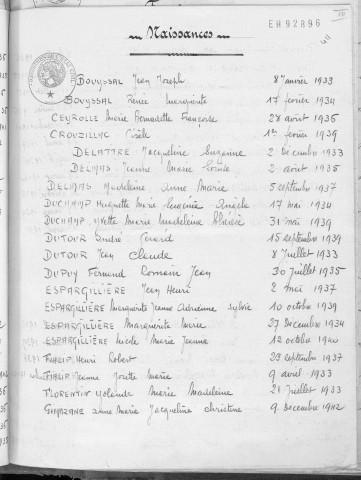 EH92896
Naissances
BOUYSSAL Jean Joseph 8 Janvier 1933
BOUYSSAL Renée Marguerite 17 février 1934
CEYROLLE Marie Bernadette Françoise 28 août 1935
CROUZILLAC Cécile 1er février 1939
DELATTRE Jacqueline Suzanne 2 Décembre 1933
DELMAS Jeanne Marie Louise 2 août 1935
DELMAS Madeleine Anne Marie 5 septembre 1937
DUCHAMP Huguette Marie Eugénie Angèle 17 mai 1934
DUCHAMP Yvette Marie Madeleine Thérèse 31 mai 1939
DUTOUR André Gérard 15 septembre 1939
DUTOUR Jean Claude 8 Juillet 1933
DUPUY Fernand Romain Jean 30 Juillet 1935
ESPARGILLIÈRE Jean Henri 2 mai 1937
ESPARGILLIÈRE Marguerite Jeanne Adrienne Sylvie 10 octobre 1939
ESPARGILLIÈRE Marguerite Marie 27 Décembre 1934
ESPARGILLIÈRE Nicole Marie Jeanne 12 octobre 1940
FIALIP Henri Robert 29 septembre 1937
FIALIP Jeanne Josette Marie 9 avril 1933
FLORENTIN Yolande Marie Madeleine 21 Juillet 1933
Anne Marie Jacqueline Christine 9 Décembre 1942